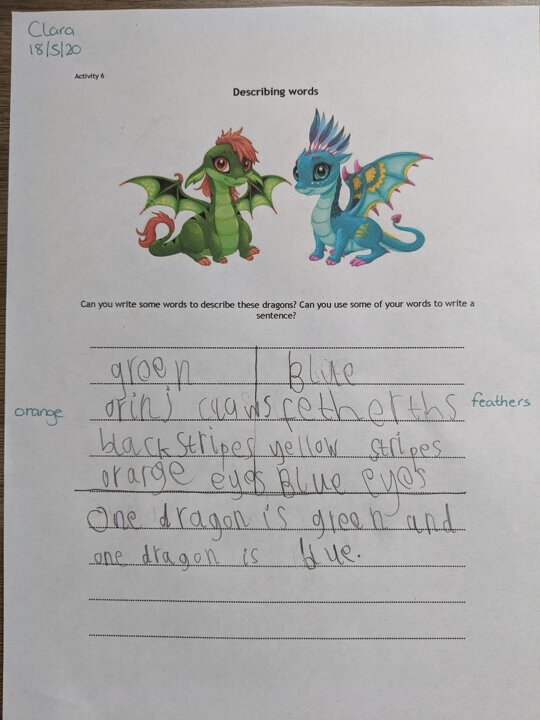 Clara
18/5/20
Activity 6
Describing words
Can you write some words to describe these dragons? Can you use some of your words to write a
sentence?
green Blue
orange orinj claws fetherths feathers
black stripes yellow stripes
orange eyes Blue eyes
One dragon is green and
one dragon is blue.